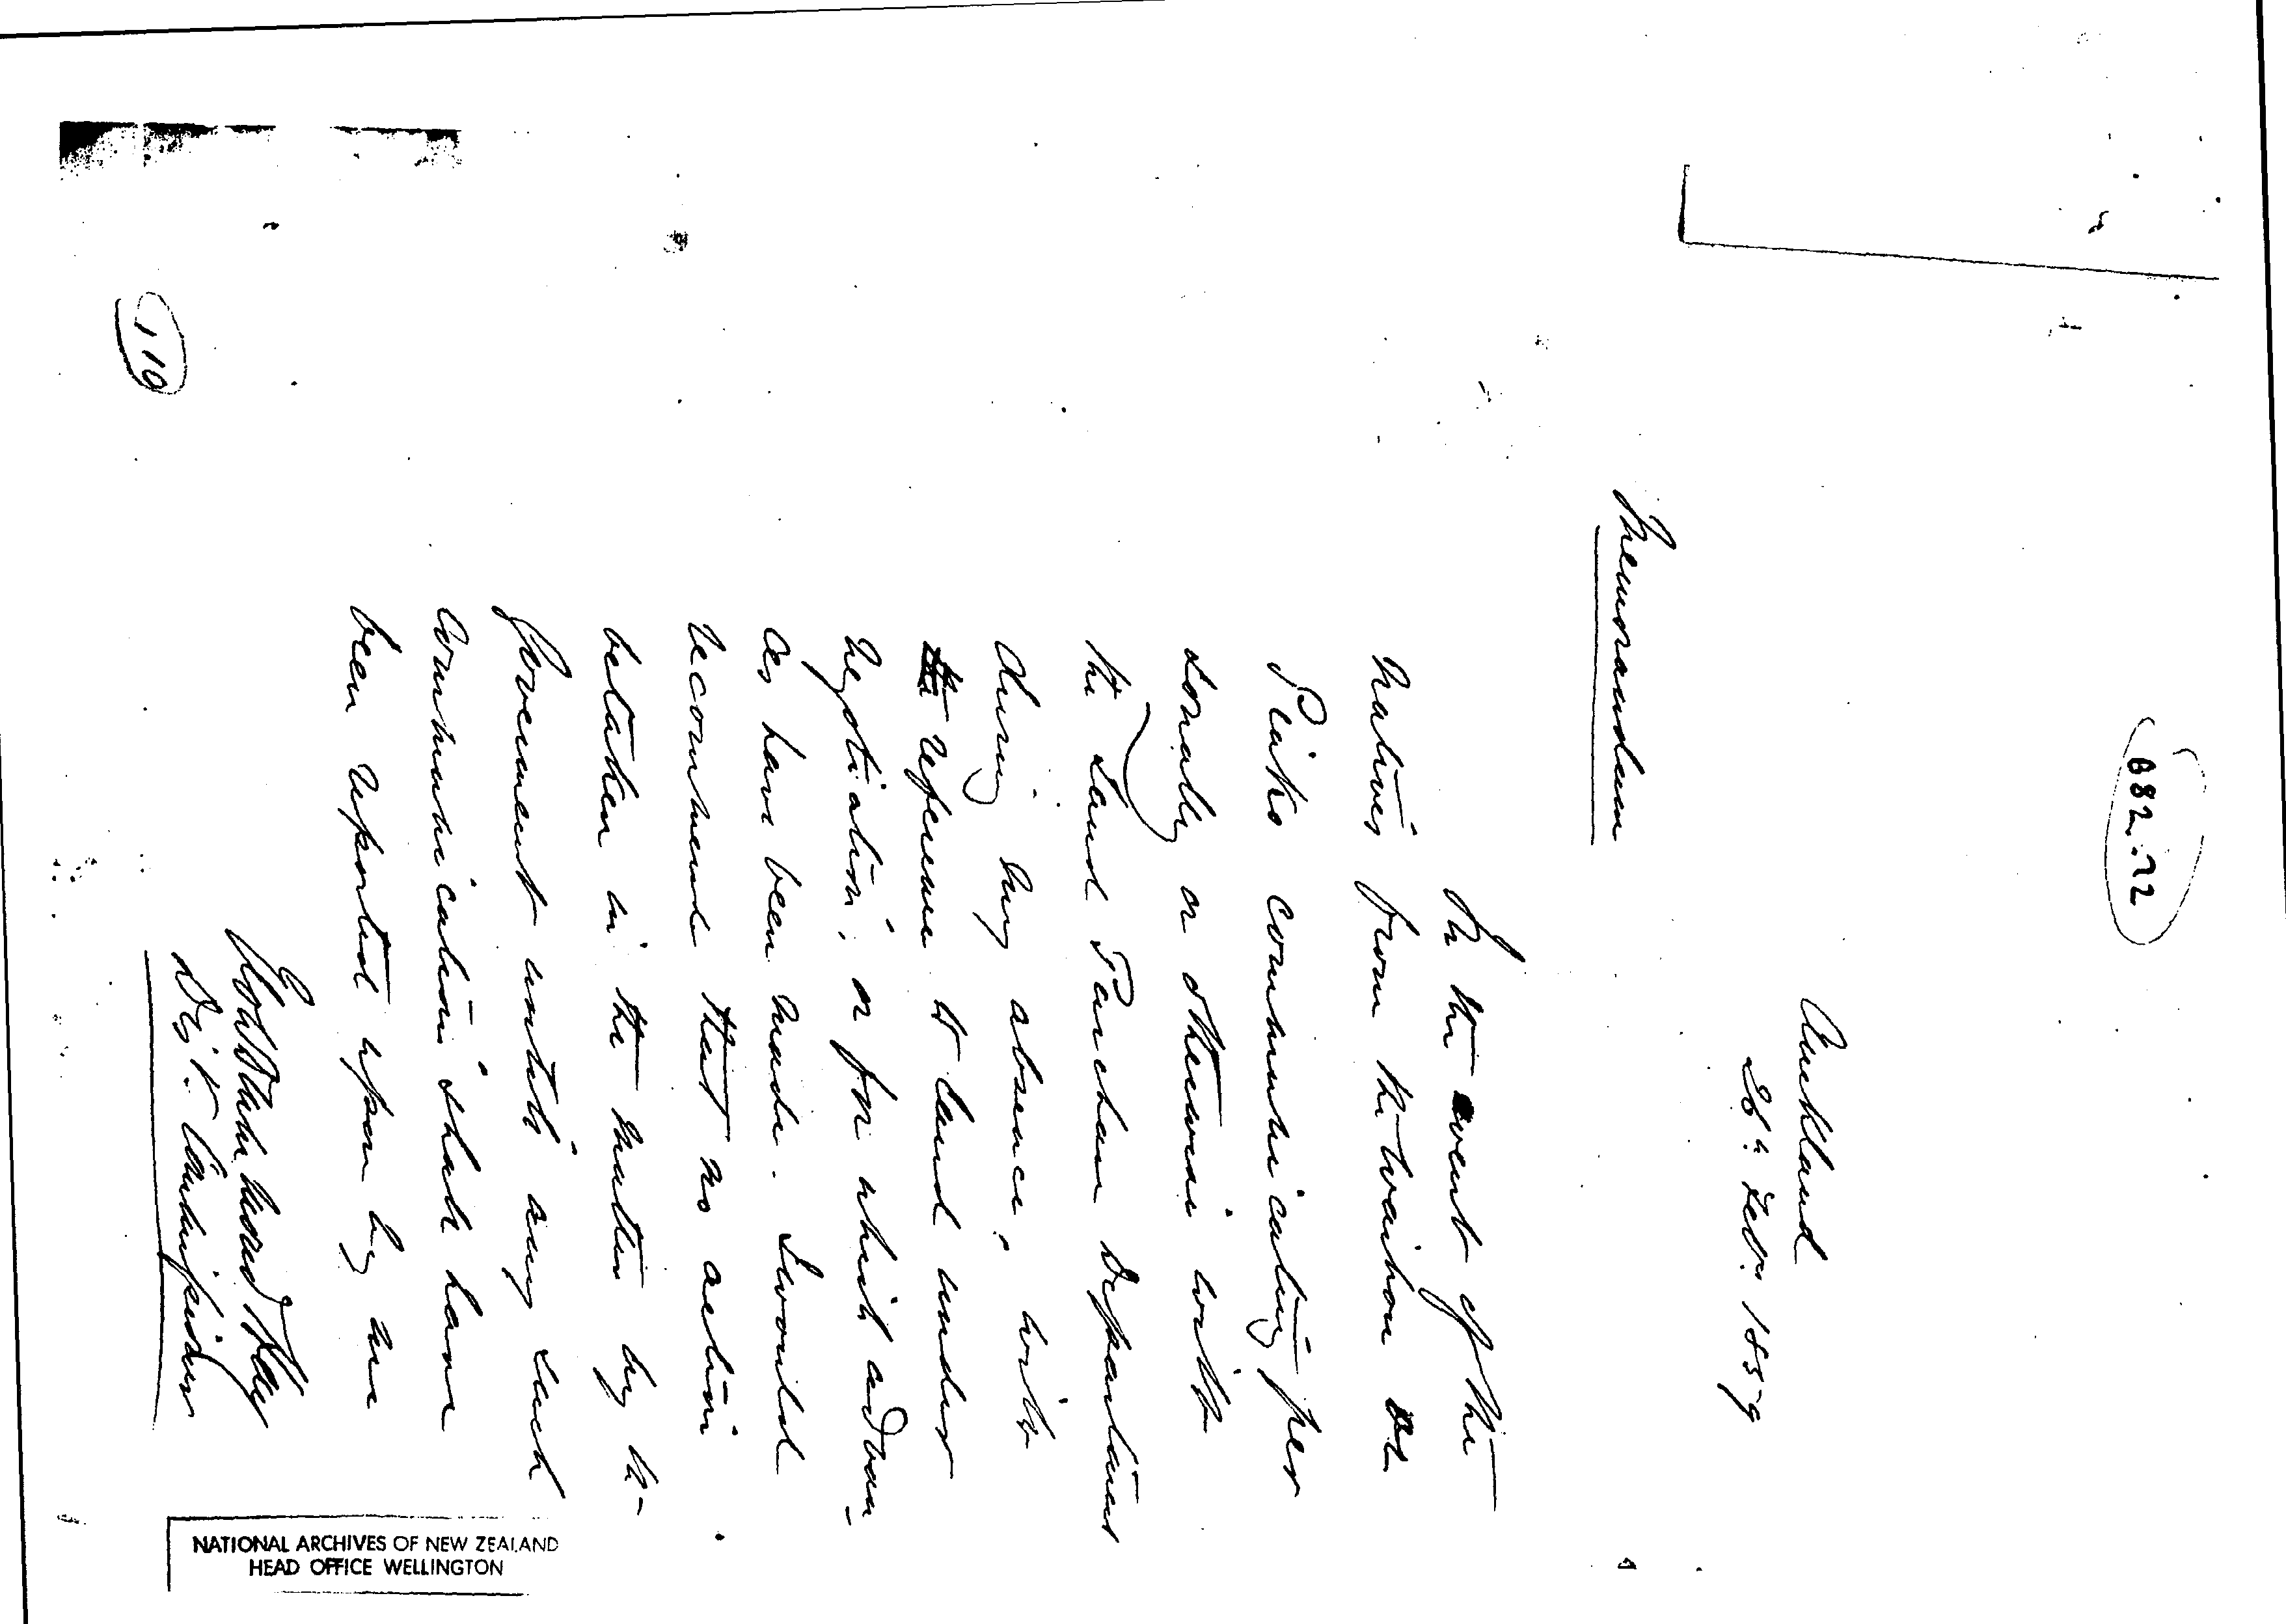 B82.22
Auckland
26th Feb. 1859
Memorandum
In the event of the
natives from the Waihou or
Piako communicating per
sonally or otherwise with
the Land Purchase Department
during my absence, with
reference to land under
negotiation, or for which advan-
ces have been made. I would
recommend that no action
be taken in the matter by the
Government until any such
communication shall have
been reported upon by me
Drummond Hay
Dist. Commissioner
110
NATIONAL ARCHIVES OF NEW ZEALAND
HEAD OFFICE WELLINGTON